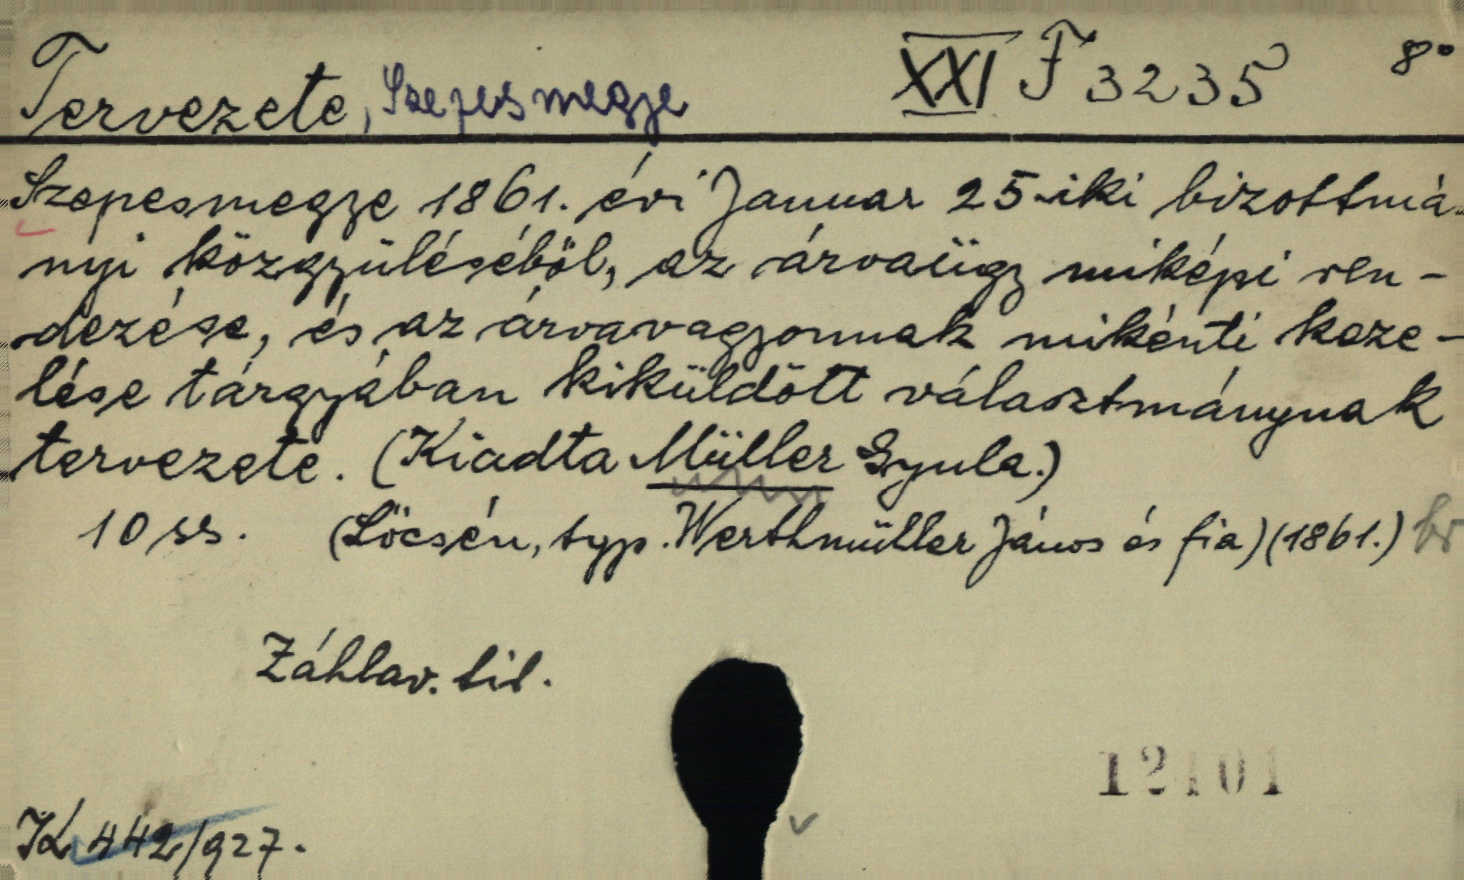 Tervezete, Szepesmegye XXI F 3235 8°
Szepesmegye 1861. évi Januar 25-iki bizottmá-
nyi közgyüléséböl, az árvaügy miképi ren-
dezése, és az árvavagyonnak mikénti keze-
lése tárgyában kiküldött választmánynak
tervezete. (Kiadta Müller Gyula.)
10 ss. (Löcsén, typ. Werthmüller János és fia) (1861.)
Záhlav. tit.
12101
442/927.